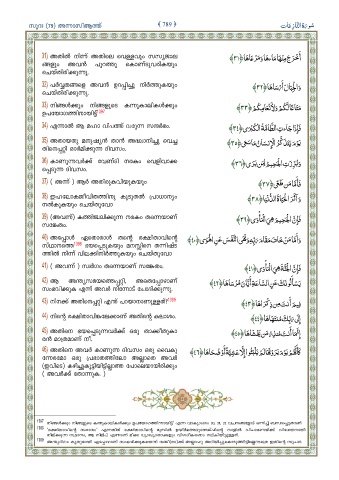 സൂറ (79) അന്നാസിആത്ത് ﴾ 789 ﴿ سُورَةُ النَّازِعَاتِ
31) അതിൽ നിന്ന് അതിലെ വെള്ളവും സസ്യജാല
ങ്ങളും അവൻ പുറത്തു കൊണ്ടുവരികയും
ചെയ്തിരിക്കുന്നു.
أَخْرَجَ مِنْهَا مَاءَهَا وَمَرْعَاهَا ﴿٣١﴾
32) പർവ്വതങ്ങളെ അവൻ ഉറപ്പിച്ചു നിർത്തുകയും
ചെയ്തിരിക്കുന്നു.
وَالْجِبَالَ أَرْسَاهَا ﴿٣٢﴾
33) നിങ്ങൾക്കും നിങ്ങളുടെ കന്നുകാലികൾക്കും
ഉപയോഗത്തിനായിട്ട്
مَتَاعًا لَكُمْ وَلِأَنْعَامِكُمْ ﴿٣٣﴾
34) എന്നാൽ ആ മഹാ വിപത്ത് വരുന്ന സന്ദർഭം.
فَإِذَا جَاءَتِ الطَّامَّةُ الْكُبْرَى ﴿٣٤﴾
35) അതായതു മനുഷ്യൻ താൻ അദ്ധ്വാനിച്ചു വെച്ച
തിനെപ്പറ്റി ഓർമിക്കുന്ന ദിവസം.
يَوْمَ يَتَذَكَّرُ الْإِنْسَانُ مَا سَعَى ﴿٣٥﴾
36) കാണുന്നവർക്ക് വേണ്ടി നരകം വെളിവാക്ക
പ്പെടുന്ന ദിവസം.
وَبُرِّزَتِ الْجَحِيمُ لِمَنْ يَرَى ﴿٣٦﴾
37) ( അന്ന് ) ആർ അതിരുകവിയുകയും
فَأَمَّا مَنْ طَغَى ﴿٣٧﴾
38) ഇഹലോകജീവിതത്തിനു കൂടുതൽ പ്രാധാന്യം
നൽകുകയും ചെയ്തുവോ
وَآثَرَ الْحَيَاةَ الدُّنْيَا ﴿٣٨﴾
39) (അവന്ന്) കത്തിജ്വലിക്കുന്ന നരകം തന്നെയാണ്
സങ്കേതം.
فَإِنَّ الْجَحِيمَ هِيَ الْمَأْوَى ﴿٣٩﴾
40) അപ്പോൾ ഏതൊരാൾ തന്റെ രക്ഷിതാവിന്റെ
സ്ഥാനത്തെ ഭയപ്പെടുകയും മനസ്സിനെ തന്നിഷ്ട
ത്തിൽ നിന്ന് വിലക്കിനിർത്തുകയും ചെയ്തുവോ
وَأَمَّا مَنْ خَافَ مَقَامَ رَبِّهِ وَنَهَى النَّفْسَ عَنِ الْهَوَى ﴿٤٠﴾
41) ( അവന്ന് ) സ്വർഗം തന്നെയാണ് സങ്കേതം.
فَإِنَّ الْجَنَّةَ هِيَ الْمَأْوَى ﴿٤١﴾
42) ആ അന്ത്യസമയത്തെപ്പറ്റി, അതെപ്പോഴാണ്
സംഭവിക്കുക എന്ന് അവർ നിന്നോട് ചോദിക്കുന്നു.
يَسْأَلُونَكَ عَنِ السَّاعَةِ أَيَّانَ مُرْسَاهَا ﴿٤٢﴾
43) നിനക്ക് അതിനെപ്പറ്റി എന്ത് പറയാനാണുള്ളത്?
فِيمَ أَنْتَ مِنْ ذِكْرَاهَا ﴿٤٣﴾
44) നിന്റെ രക്ഷിതാവിലേക്കാണ് അതിന്റെ കലാശം.
إِلَى رَبِّكَ مُنْتَهَاهَا ﴿٤٤﴾
45) അതിനെ ഭയപ്പെടുന്നവർക്ക് ഒരു താക്കീതുകാ
രൻ മാത്രമാണ് നീ.
إِنَّمَا أَنْتَ مُنْذِرُ مَنْ يَخْشَاهَا ﴿٤٥﴾
46) അതിനെ അവർ കാണുന്ന ദിവസം ഒരു വൈകു
ന്നേരമോ ഒരു പ്രഭാതത്തിലോ അല്ലാതെ അവർ
(ഇവിടെ) കഴിച്ചുകൂട്ടിയിട്ടില്ലാത്ത പോലെയായിരിക്കും
( അവർക്ക് തോന്നുക. )
كَأَنَّهُمْ يَوْمَ يَرَوْنَهَا لَمْ يَلْبَثُوا إِلَّا عَشِيَّةً أَوْ ضُحَاهَا ﴿٤٦﴾